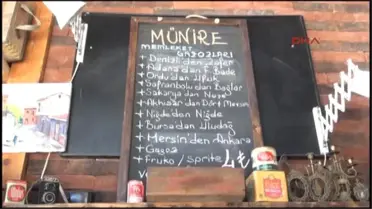 MÜNİRE
MEMLEKET
GAZOZLARI
+ Denizli'den Zafer
+ Adana'dan F. Bade
+ Ordu'dan Ufuk
+ Safranbolu'dan Bağlar
+ Sakarya'dan
+ Akhisar'dan Dört Mevsim
+ Niğde'den Niğde
+ Bursa'dan Uludağ
+ Mersin'den Ankara
+ Gazoz
+ Fruko / sprite
4 ₺